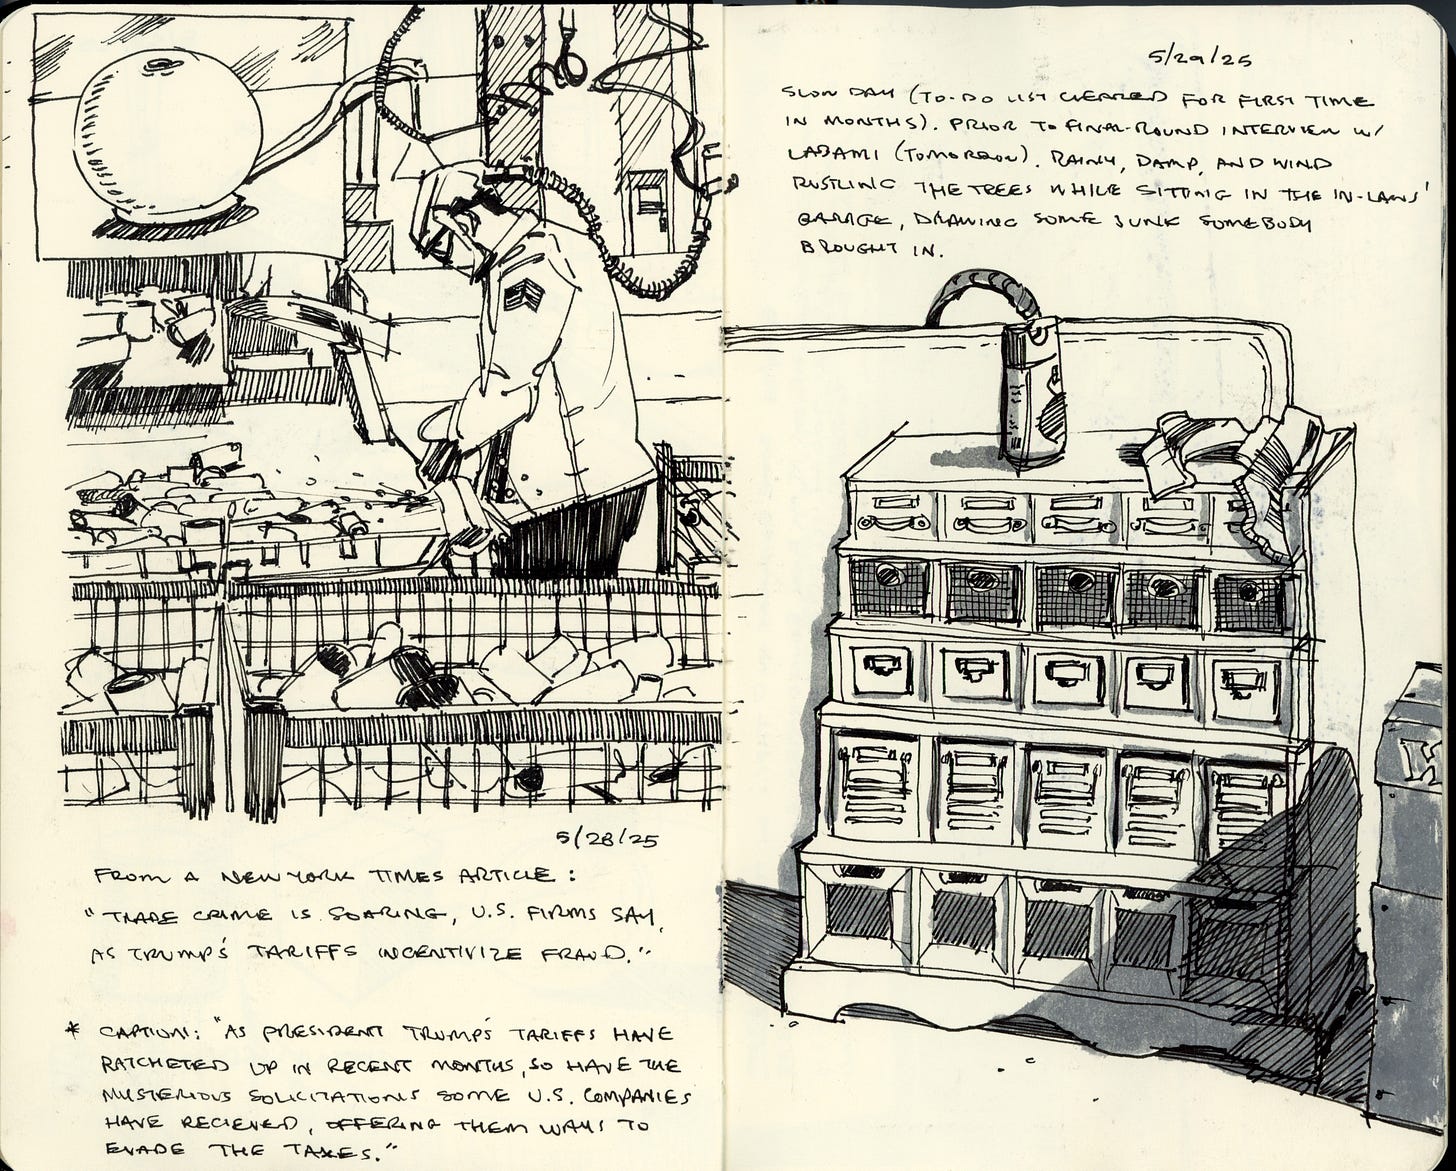 5/28/25
FROM A NEW YORK TIMES ARTICLE:
"TRADE CRIME IS SOARING, U.S. FIRMS SAY,
AS TRUMP'S TARIFFS INCENTIVIZE FRAUD."
* CAPTION: "AS PRESIDENT TRUMP'S TARIFFS HAVE
RATCHETED UP IN RECENT MONTHS, SO HAVE THE
MYSTERIOUS SOLICITATIONS SOME U.S. COMPANIES
HAVE RECIEVED, OFFERING THEM WAYS TO
EVADE THE TAXES."
5/29/25
SLOW DAY (TO-DO LIST CLEARED FOR FIRST TIME
IN MONTHS). PRIOR TO FINAL-ROUND INTERVIEW W/
(TOMORROW). RAINY, DAMP, AND WIND
RUSTLING THE TREES WHILE SITTING IN THE IN-LAWS'
GARAGE, DRAWING SOME JUNK SOMEBODY
BROUGHT IN.